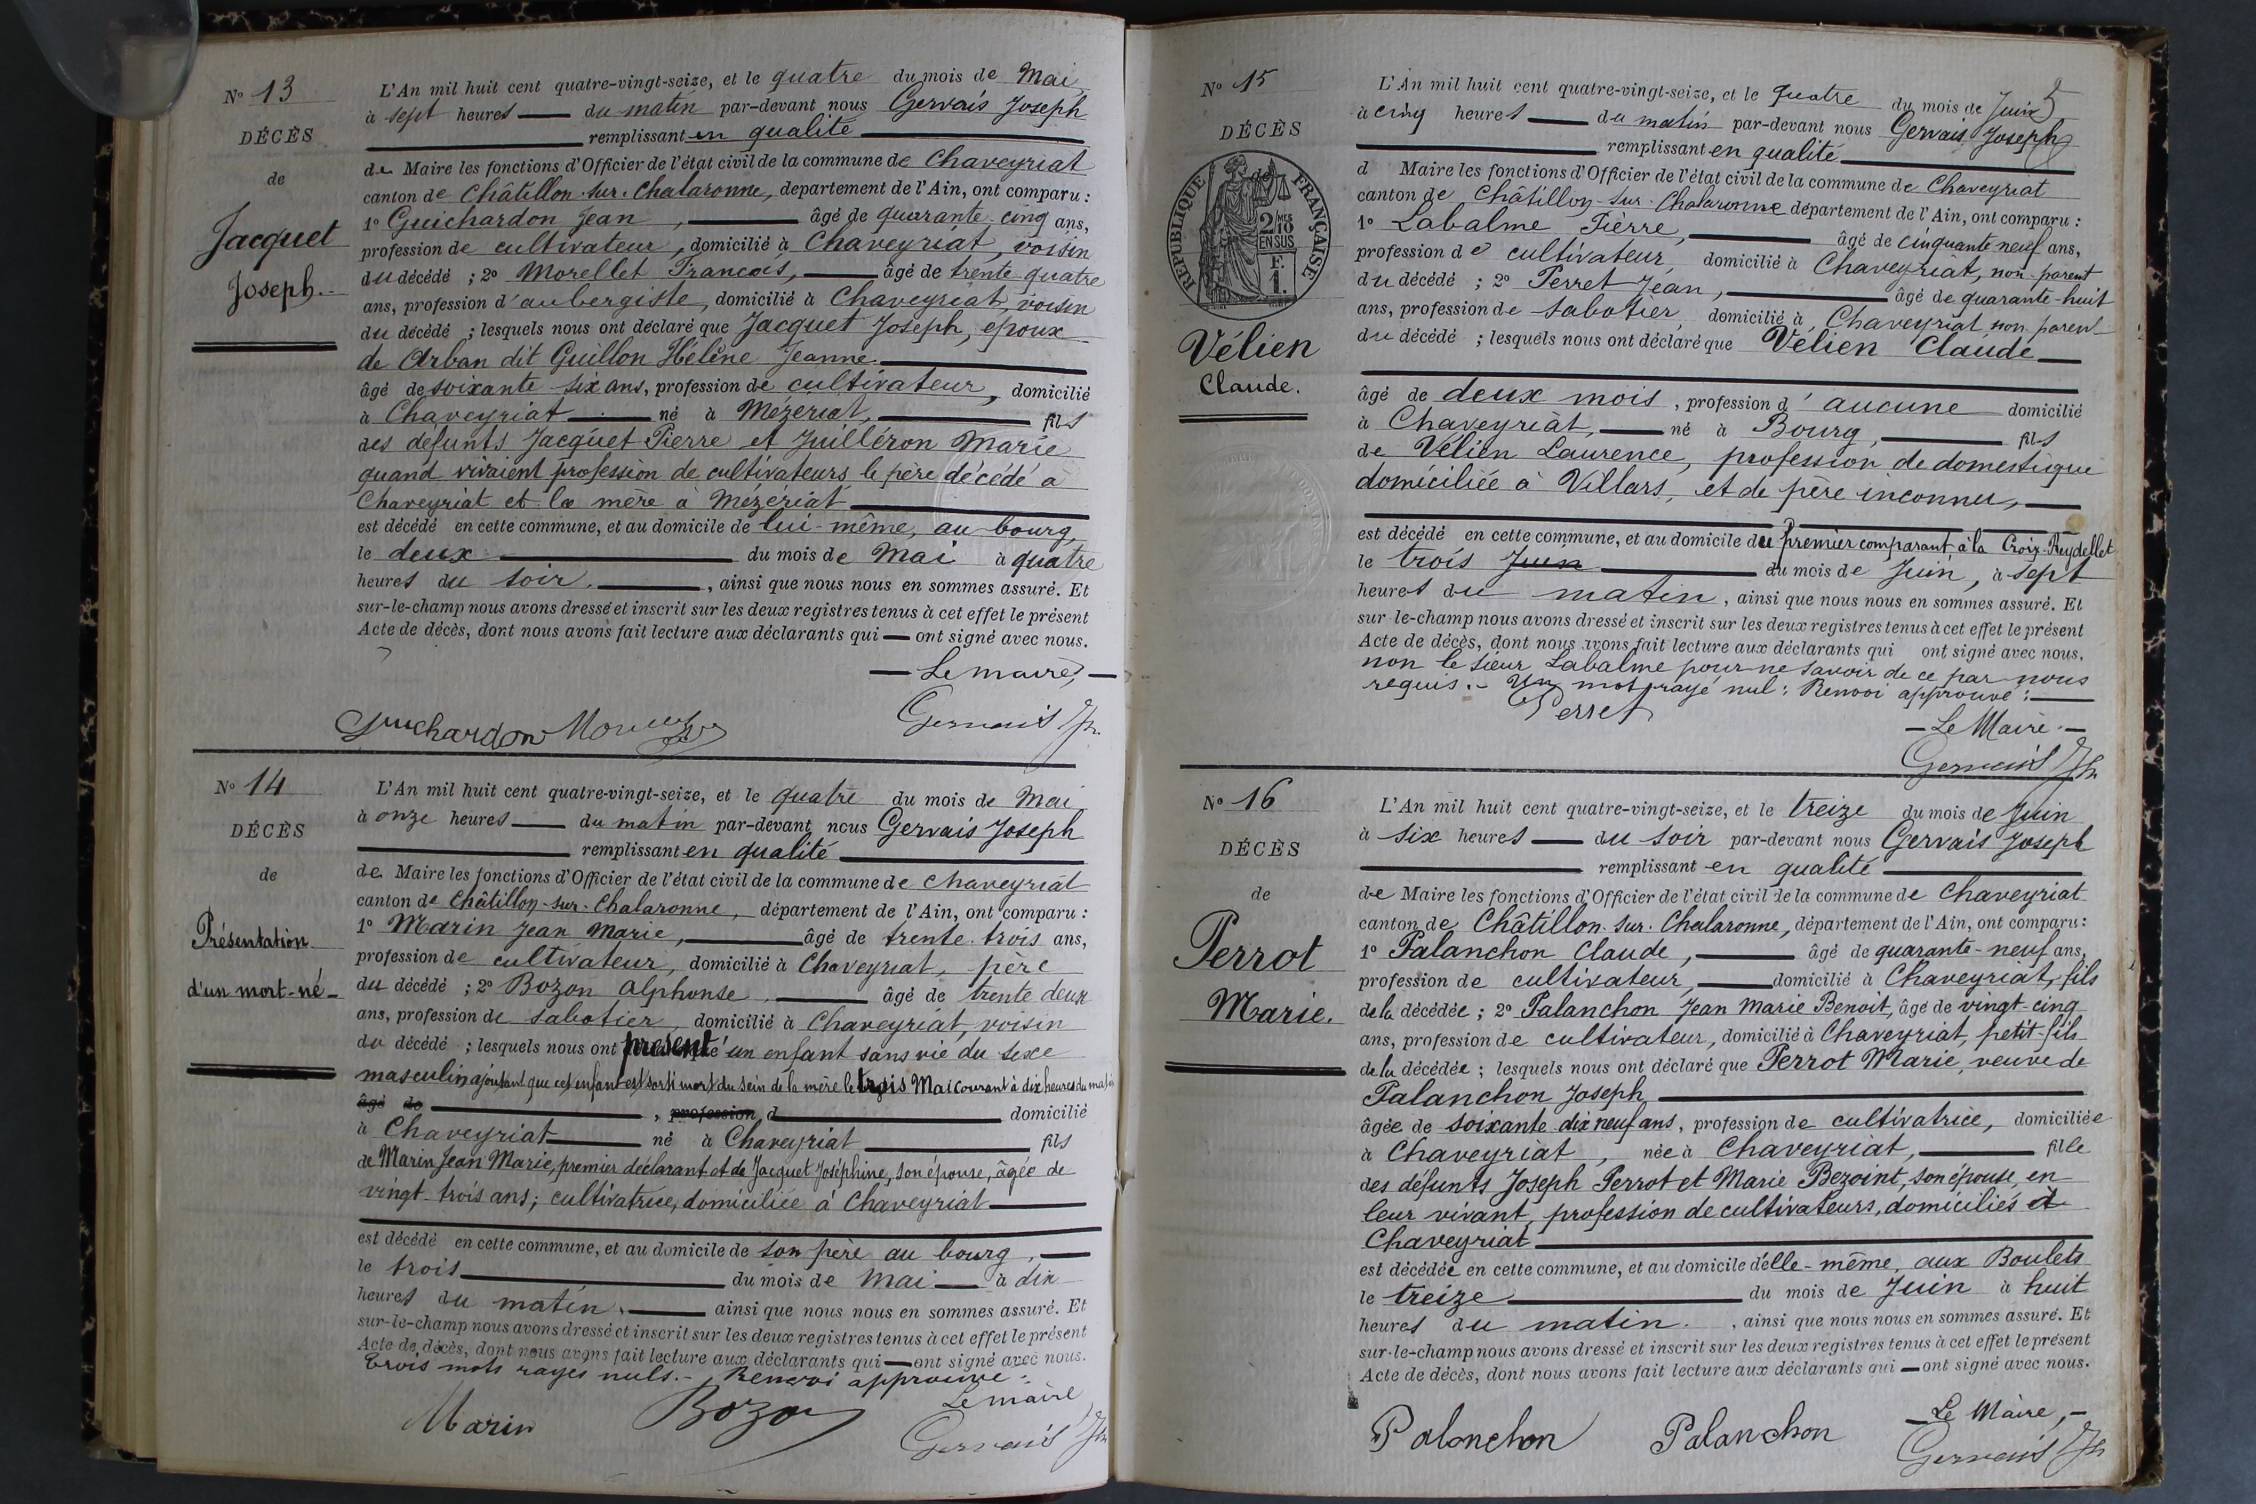 N° 13
DÉCÈS
de
Jacquet
Joseph.
L'An mil huit cent quatre-vingt-seize, et le quatre du mois de Mai
à sept heures du matin par-devant nous Gervais Joseph
remplissant en qualité
de Maire les fonctions d'Officier de l'état civil de la commune de Chaveyriat
canton de Châtillon-sur-Chalaronne, département de l'Ain, ont comparu :
1° Guichardon Jean, âgé de quarante-cinq ans,
profession de cultivateur, domicilié à Chaveyriat, voisin
du décédé ; 2° Morellet François, âgé de trente-quatre
ans, profession d'aubergiste, domicilié à Chaveyriat, voisin
du décédé ; lesquels nous ont déclaré que Jacquet Joseph, époux
de Arban dit Guillon Hélène Jeanne
âgé de soixante six ans, profession de cultivateur, domicilié
à Chaveyriat né à Mézériat, fils
des défunts Jacquet Pierre et Juilléron Marie
quand vivaient profession de cultivateurs le père décédé à
Chaveyriat et la mère à Mézeriat
est décédé en cette commune, et au domicile de lui-même, au bourg,
le deux du mois de Mai à quatre
heures du soir, ainsi que nous nous en sommes assuré. Et
sur-le-champ nous avons dressé et inscrit sur les deux registres tenus à cet effet le présent
Acte de décès, dont nous avons fait lecture aux déclarants qui ont signé avec nous.
Le maire,
Guichardon
Gervais Jh
N° 14
DÉCÈS
de
Présentation
d'un mort-né
L'An mil huit cent quatre-vingt-seize, et le quatre du mois de Mai
à onze heures du matin par-devant nous Gervais Joseph
remplissant en qualité
de Maire les fonctions d'Officier de l'état civil de la commune de Chaveyriat
canton de Châtillon-sur-Chalaronne, département de l'Ain, ont comparu :
1° Marin Jean Marie, âgé de trente-trois ans,
profession de cultivateur, domicilié à Chaveyriat, père
du décédé ; 2° Bozon Alphonse, âgé de trente deux
ans, profession de sabotier, domicilié à Chaveyriat, voisin
du décédé ; lesquels nous ont présenté un enfant sans vie du sexe
masculin ajoutant que cet enfant est sorti mort du sein de la mère le trois Mai courant à dix heures du matin
âgé de, profession d domicilié
à Chaveyriat né à Chaveyriat fils
de Marin Jean Marie, premier déclarant et de Jacquet Joséphine, son épouse, âgée de
vingt-trois ans; cultivatrice, domiciliée à Chaveyriat
est décédé en cette commune, et au domicile de son père au bourg,
le trois du mois de Mai à dix
heures du matin, ainsi que nous nous en sommes assuré. Et
sur-le-champ nous avons dressé et inscrit sur les deux registres tenus à cet effet le présent
Acte de décès, dont nous avons fait lecture aux déclarants qui ont signé avec nous.
trois mots rayés nuls. - Renvoi approuvé :
Le maire
Marin
Bozon
Gervais Jh
5
N° 15
DÉCÈS
RÉPUBLIQUE FRANÇAISE
2/10 MES
EN SUS
F.
1.
Vélien
Claude.
L'An mil huit cent quatre-vingt-seize, et le quatre du mois de Juin
à cinq heures du matin par-devant nous Gervais Joseph
remplissant en qualité
d Maire les fonctions d'Officier de l'état civil de la commune de Chaveyriat
canton de Châtillon-sur-Chalaronne département de l'Ain, ont comparu :
1° Labalme Pierre, âgé de cinquante neuf ans,
profession de cultivateur, domicilié à Chaveyriat, non-parent
du décédé ; 2° Perret Jean, âgé de quarante-huit
ans, profession de sabotier, domicilié à Chaveyriat non parent
du décédé ; lesquels nous ont déclaré que Vélien Claude
âgé de deux mois, profession d'aucune domicilié
à Chaveyriat, né à Bourg, fils
de Vélien Laurence, profession de domestique
domiciliée à Villars, et de père inconnu,
est décédé en cette commune, et au domicile du premier comparant à la Croix-Reydellet
le trois Juin du mois de Juin, à sept
heures du matin, ainsi que nous nous en sommes assuré. Et
sur-le-champ nous avons dressé et inscrit sur les deux registres tenus à cet effet le présent
Acte de décès, dont nous avons fait lecture aux déclarants qui ont signé avec nous.
non le sieur Labalme pour ne savoir de ce par nous
requis. - Un mot rayé nul : Renvoi approuvé :
Perret
Le Maire.
Gervais Jh
N° 16
DÉCÈS
de
Perrot
Marie.
L'An mil huit cent quatre-vingt-seize, et le treize du mois de Juin
à six heures du soir par-devant nous Gervais Joseph
remplissant en qualité
de Maire les fonctions d'Officier de l'état civil de la commune de Chaveyriat
canton de Châtillon-sur-Chalaronne, département de l'Ain, ont comparu :
1° Palanchon Claude, âgé de quarante-neuf ans,
profession de cultivateur, domicilié à Chaveyriat, fils
de la décédée ; 2° Palanchon Jean Marie Benoit, âgé de vingt-cinq
ans, profession de cultivateur, domicilié à Chaveyriat, petit-fils
de la décédée ; lesquels nous ont déclaré que Perrot Marie, veuve de
Palanchon Joseph
âgée de soixante dix neuf ans, profession de cultivatrice, domiciliée
à Chaveyriat, née à Chaveyriat, fille
des défunts Joseph Perrot et Marie Bezoint, son épouse, en
leur vivant, profession de cultivateurs, domiciliés à
Chaveyriat
est décédée en cette commune, et au domicile d'elle-même, aux Boulets
le treize du mois de Juin à huit
heures du matin, ainsi que nous nous en sommes assuré. Et
sur-le-champ nous avons dressé et inscrit sur les deux registres tenus à cet effet le présent
Acte de décès, dont nous avons fait lecture aux déclarants qui ont signé avec nous.
Le Maire,
Palanchon
Palanchon
Gervais Jh